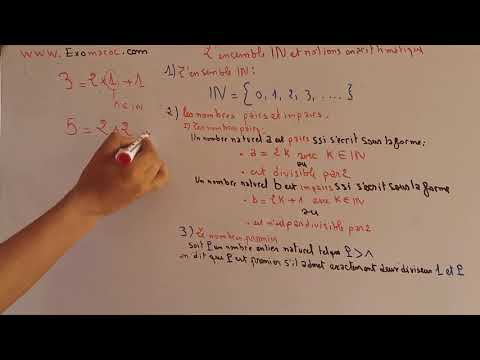 www.Exomaroc.com
L'ensemble IN et notions arithmétique
3 = 2×1 + 1
n ∈ IN
5 = 2×2
1) L'ensemble IN:
IN = { 0, 1, 2, 3, .... }
2) les nombres pairs et impairs.
1) les nombres pairs:
Un nombre naturel a est pairs ssi s'écrit sous la forme:
• a = 2K avec K ∈ IN
ou
• est divisible par 2
Un nombre naturel b est impairs ssi s'écrit sous la forme
• b = 2K + 1 avec K ∈ IN
ou
• est n'est pas divisible par 2
3) Le nombres premier
soit P un nombre entier naturel tel que P > 1
on dit que P est premier s'il admet exactement deux diviseur 1 et P